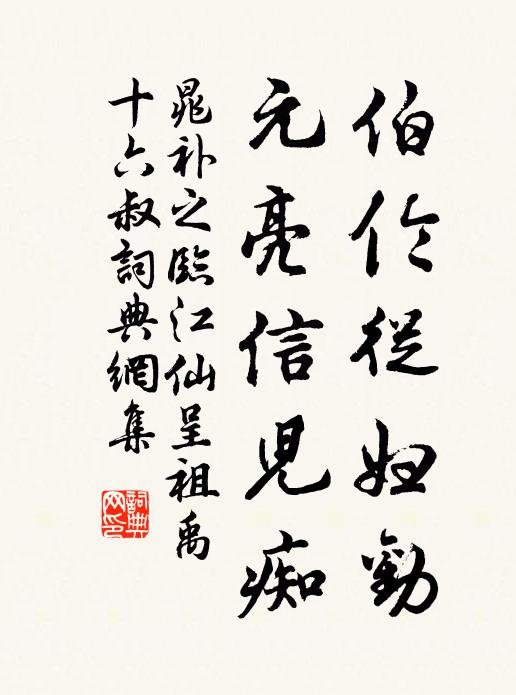 伯伦從婦勸
元亮信児痴
晁補之臨江仙呈祖禹
十六叔詞典網集
詞典网印